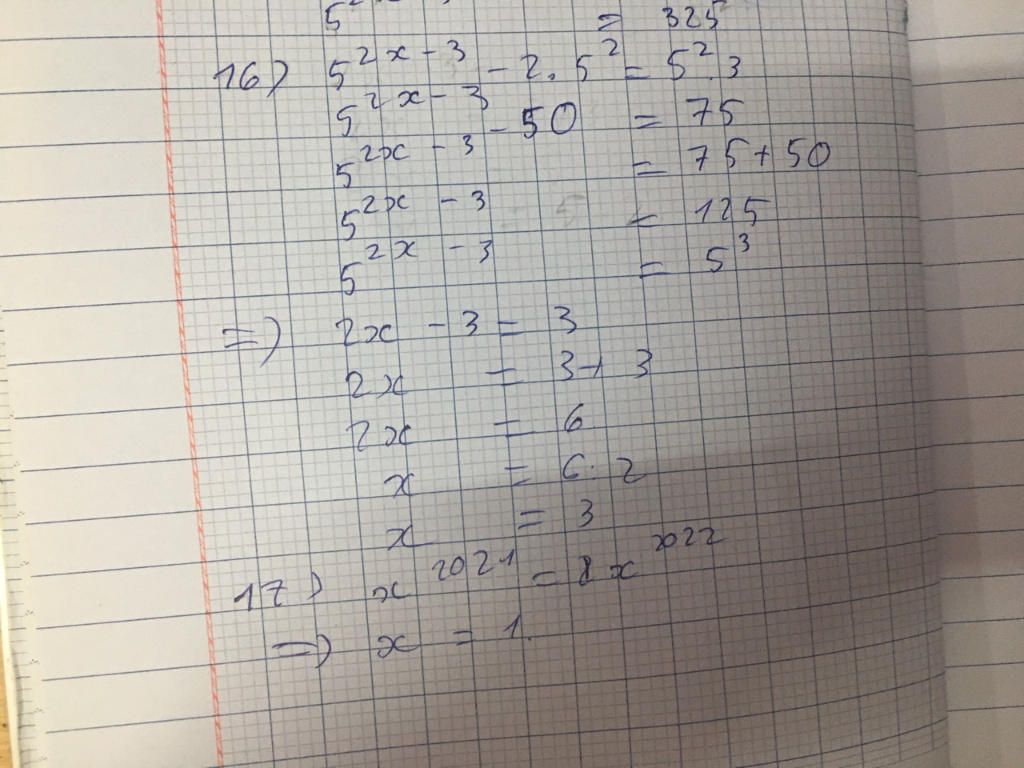 5² = 325
16) 5^{2x-3} - 2.5² = 5².3
5^{2x-3} - 50 = 75
5^{2x-3} = 75+50
5^{2x-3} = 125
5^{2x-3} = 5³
=) 2x - 3 = 3
2x = 3+3
2x = 6
x = 6.2
x = 3
17) x^{2021} = 8x^{2022}
=) x = 1.